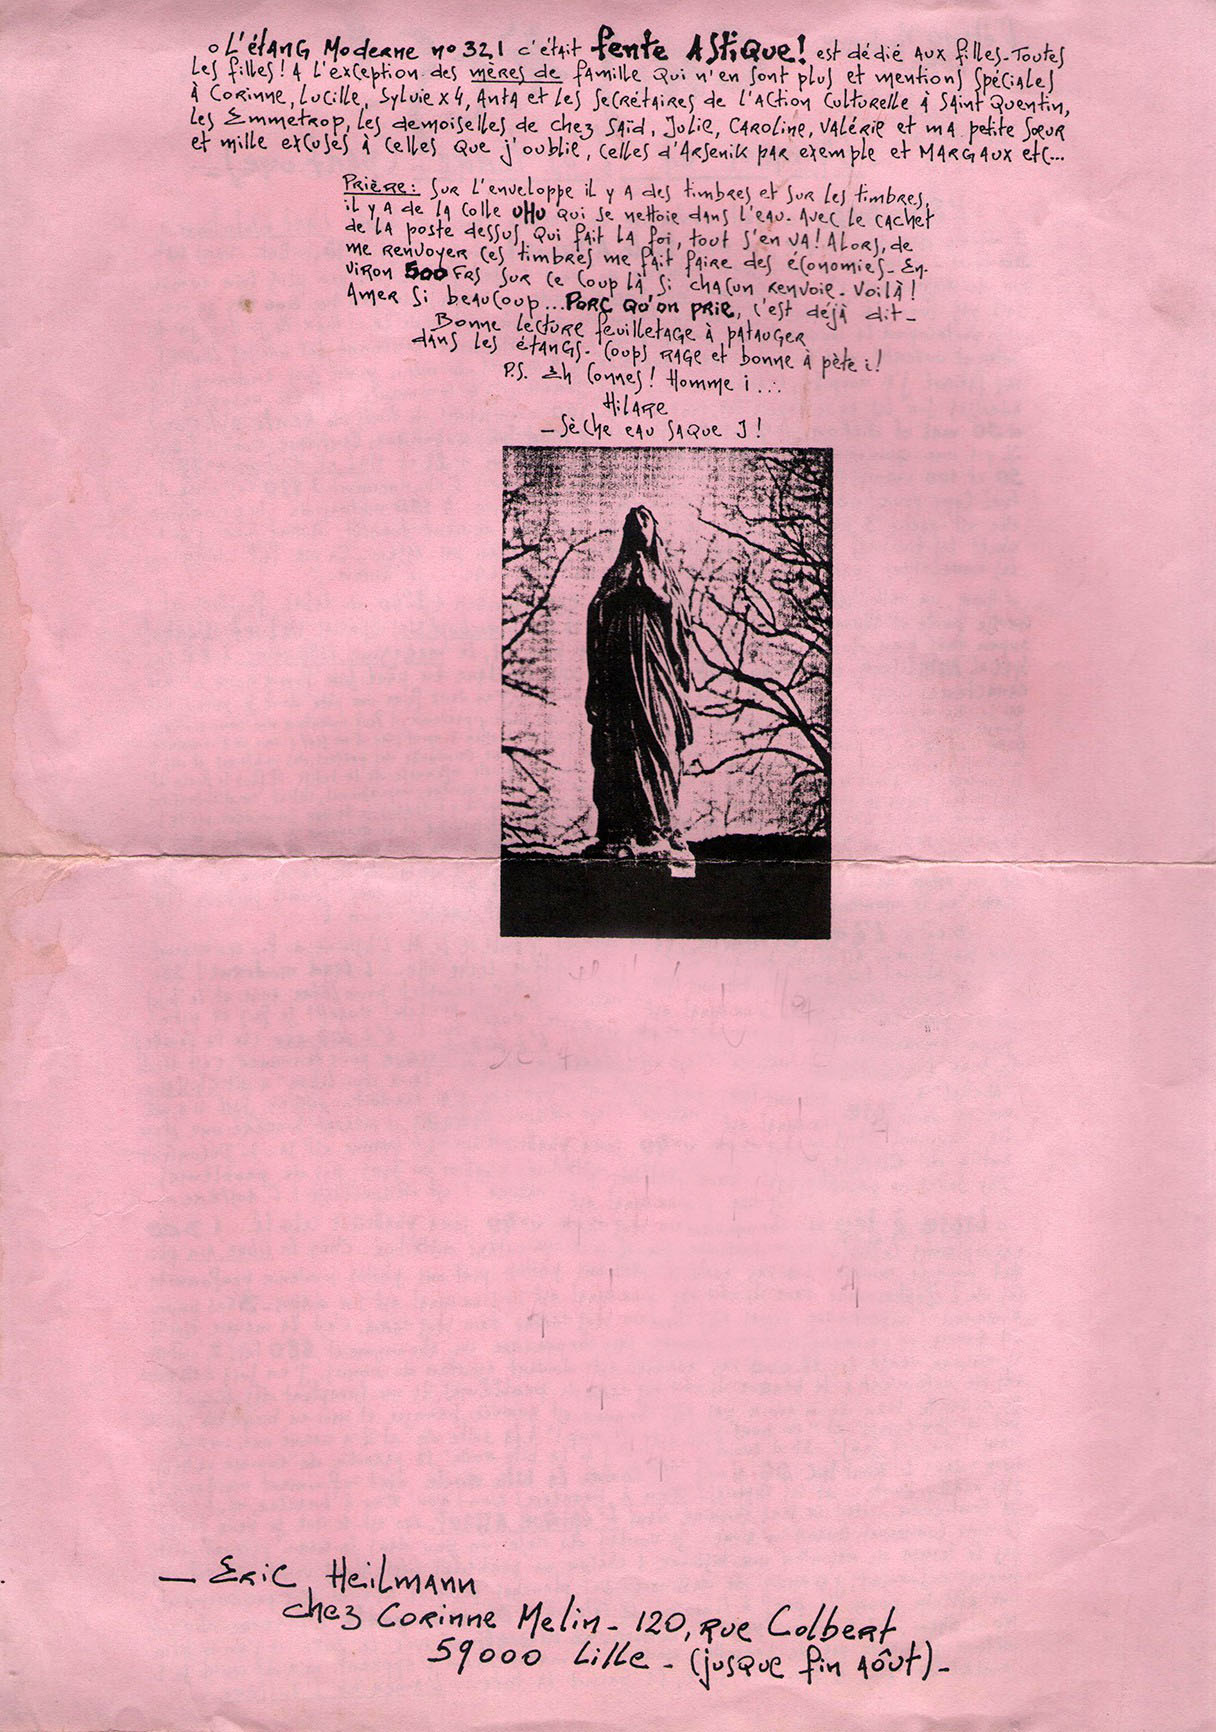 o L'étANG Moderne no 32,1 c'était fente AStiQue! est dédié aux filles. Toutes
les filles! A l'exception des mères de famille qui n'en sont plus et mentions spéciales
à Corinne, Lucille, Sylvie x 4, Anta et les secrétaires de l'Action Culturelle à Saint Quentin,
les Emmetrop, les demoiselles de chez Saïd, Julie, Caroline, Valérie et ma petite soeur
et mille excuses à celles que j'oublie, celles d'Arsenik par exemple et MARGAUX etc...
Prière: Sur l'enveloppe il y a des timbres et sur les timbres,
il y a de la colle UHU qui se nettoie dans l'eau. Avec le cachet
de la poste dessus, qui fait la foi, tout s'en va! Alors, de
me renvoyer ces timbres me fait faire des économies. En-
viron 500 Frs sur ce coup là si chacun renvoie. Voilà!
Amer si beaucoup... Porc Qu'on prie, c'est déjà dit_
Bonne lecture feuilletage à patauger
dans les étangs. Coups rage et bonne à pète i!
P.S. Eh Connes! Homme i...
Hilare
_ Sèche eau saque J!
_ Eric Heilmann
chez Corinne Melin_ 120, rue Colbert
59000 Lille _ (jusque fin Aôut)_